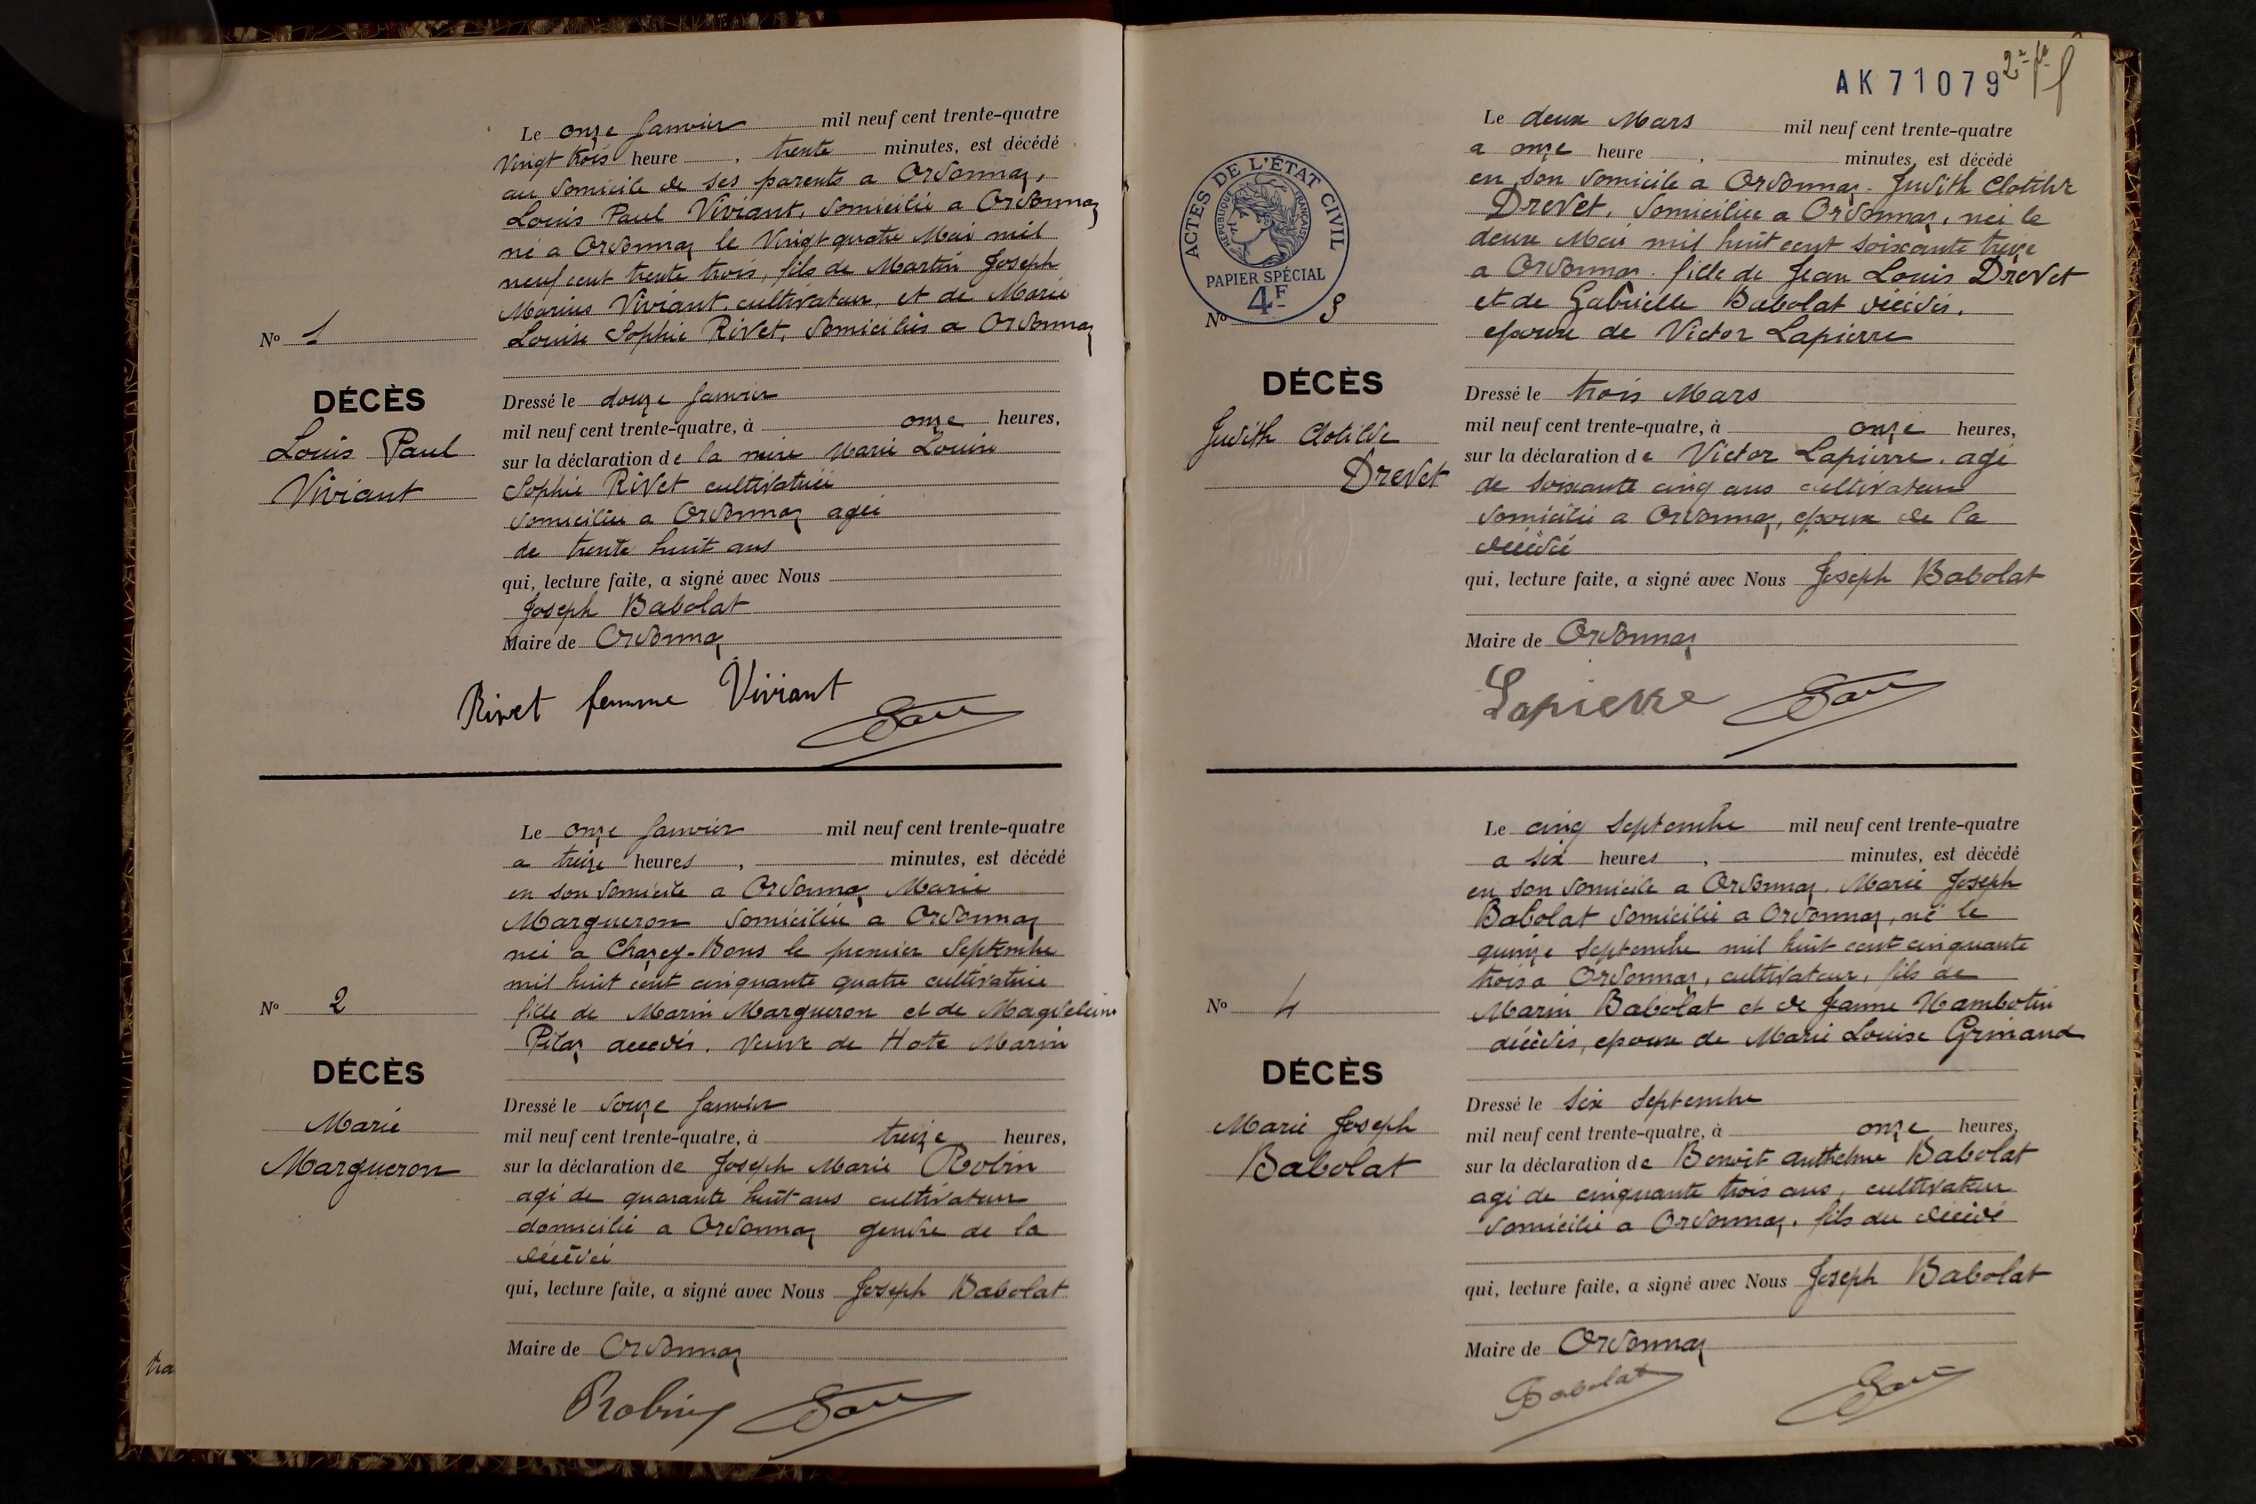 Le onze Janvier mil neuf cent trente-quatre
Vingt trois heure , trente minutes, est décédé
au domicile de ses parents a Ordonnaz,
Louis Paul Viviant, domicilié a Ordonnaz
né a Ordonnaz le Vingt quatre Mai mil
neuf cent trente trois, fils de Martin Joseph
Marius Viviant, cultivateur, et de Marie
Louise Sophie Rivet, domiciliés a Ordonnaz
No 1
DÉCÈS
Louis Paul
Viviant
Dressé le douze Janvier
mil neuf cent trente-quatre, à onze heures,
sur la déclaration de la mère Marie Louise
Sophie Rivet cultivatrice
domiciliée a Ordonnaz agée
de trente huit ans
qui, lecture faite, a signé avec Nous
Joseph Babolat
Maire de Ordonnaz
Rivet femme Viviant
Le onze Janvier mil neuf cent trente-quatre
a treize heures , minutes, est décédé
en son domicile a Ordonnaz Marie
Margueron domiciliée a Ordonnaz
née a Chazey-Bons le premier Septembre
mil huit cent cinquante quatre cultivatrice
fille de Marin Margueron et de Magdeleine
Pitaz décédés. Veuve de Hote Marin
No 2
DÉCÈS
Marie
Margueron
Dressé le douze Janvier
mil neuf cent trente-quatre, à treize heures,
sur la déclaration de Joseph Marie Robin
agé de quarante huit ans cultivateur
domicilié a Ordonnaz gendre de la
décédée
qui, lecture faite, a signé avec Nous Joseph Babolat
Maire de Ordonnaz
Robin
AK 71079
ACTES DE L'ÉTAT CIVIL
RÉPUBLIQUE FRANÇAISE
PAPIER SPÉCIAL
4F
Le deux Mars mil neuf cent trente-quatre
a onze heure , minutes, est décédé
en son domicile a Ordonnaz. Judith Clotilde
Drevet, domiciliée a Ordonnaz, née le
deux Mai mil huit cent soixante treize
a Ordonnaz. fille de Jean Louis Drevet
et de Gabrielle Babolat décédés.
epouse de Victor Lapierre
No 3
DÉCÈS
Judith Clotilde
Drevet
Dressé le trois Mars
mil neuf cent trente-quatre, à onze heures,
sur la déclaration de Victor Lapierre. agé
de soixante cinq ans cultivateur
domicilié a Ordonnaz, epoux de la
décédée
qui, lecture faite, a signé avec Nous Joseph Babolat
Maire de Ordonnaz
Lapierre
Le cinq Septembre mil neuf cent trente-quatre
a six heures , minutes, est décédé
en son domicile a Ordonnaz. Marie Joseph
Babolat domicilié a Ordonnaz, né le
quinze Septembre mil huit cent cinquante
trois a Ordonnaz, cultivateur, fils de
Marin Babolat et de Jeanne Hambotin
décédés, epoux de Marie Louise Grinand
No 4
DÉCÈS
Marie Joseph
Babolat
Dressé le six Septembre
mil neuf cent trente-quatre, à onze heures,
sur la déclaration de Benoit Anthelme Babolat
agé de cinquante trois ans, cultivateur
domicilié a Ordonnaz. fils du décédé
qui, lecture faite, a signé avec Nous Joseph Babolat
Maire de Ordonnaz
Babolat